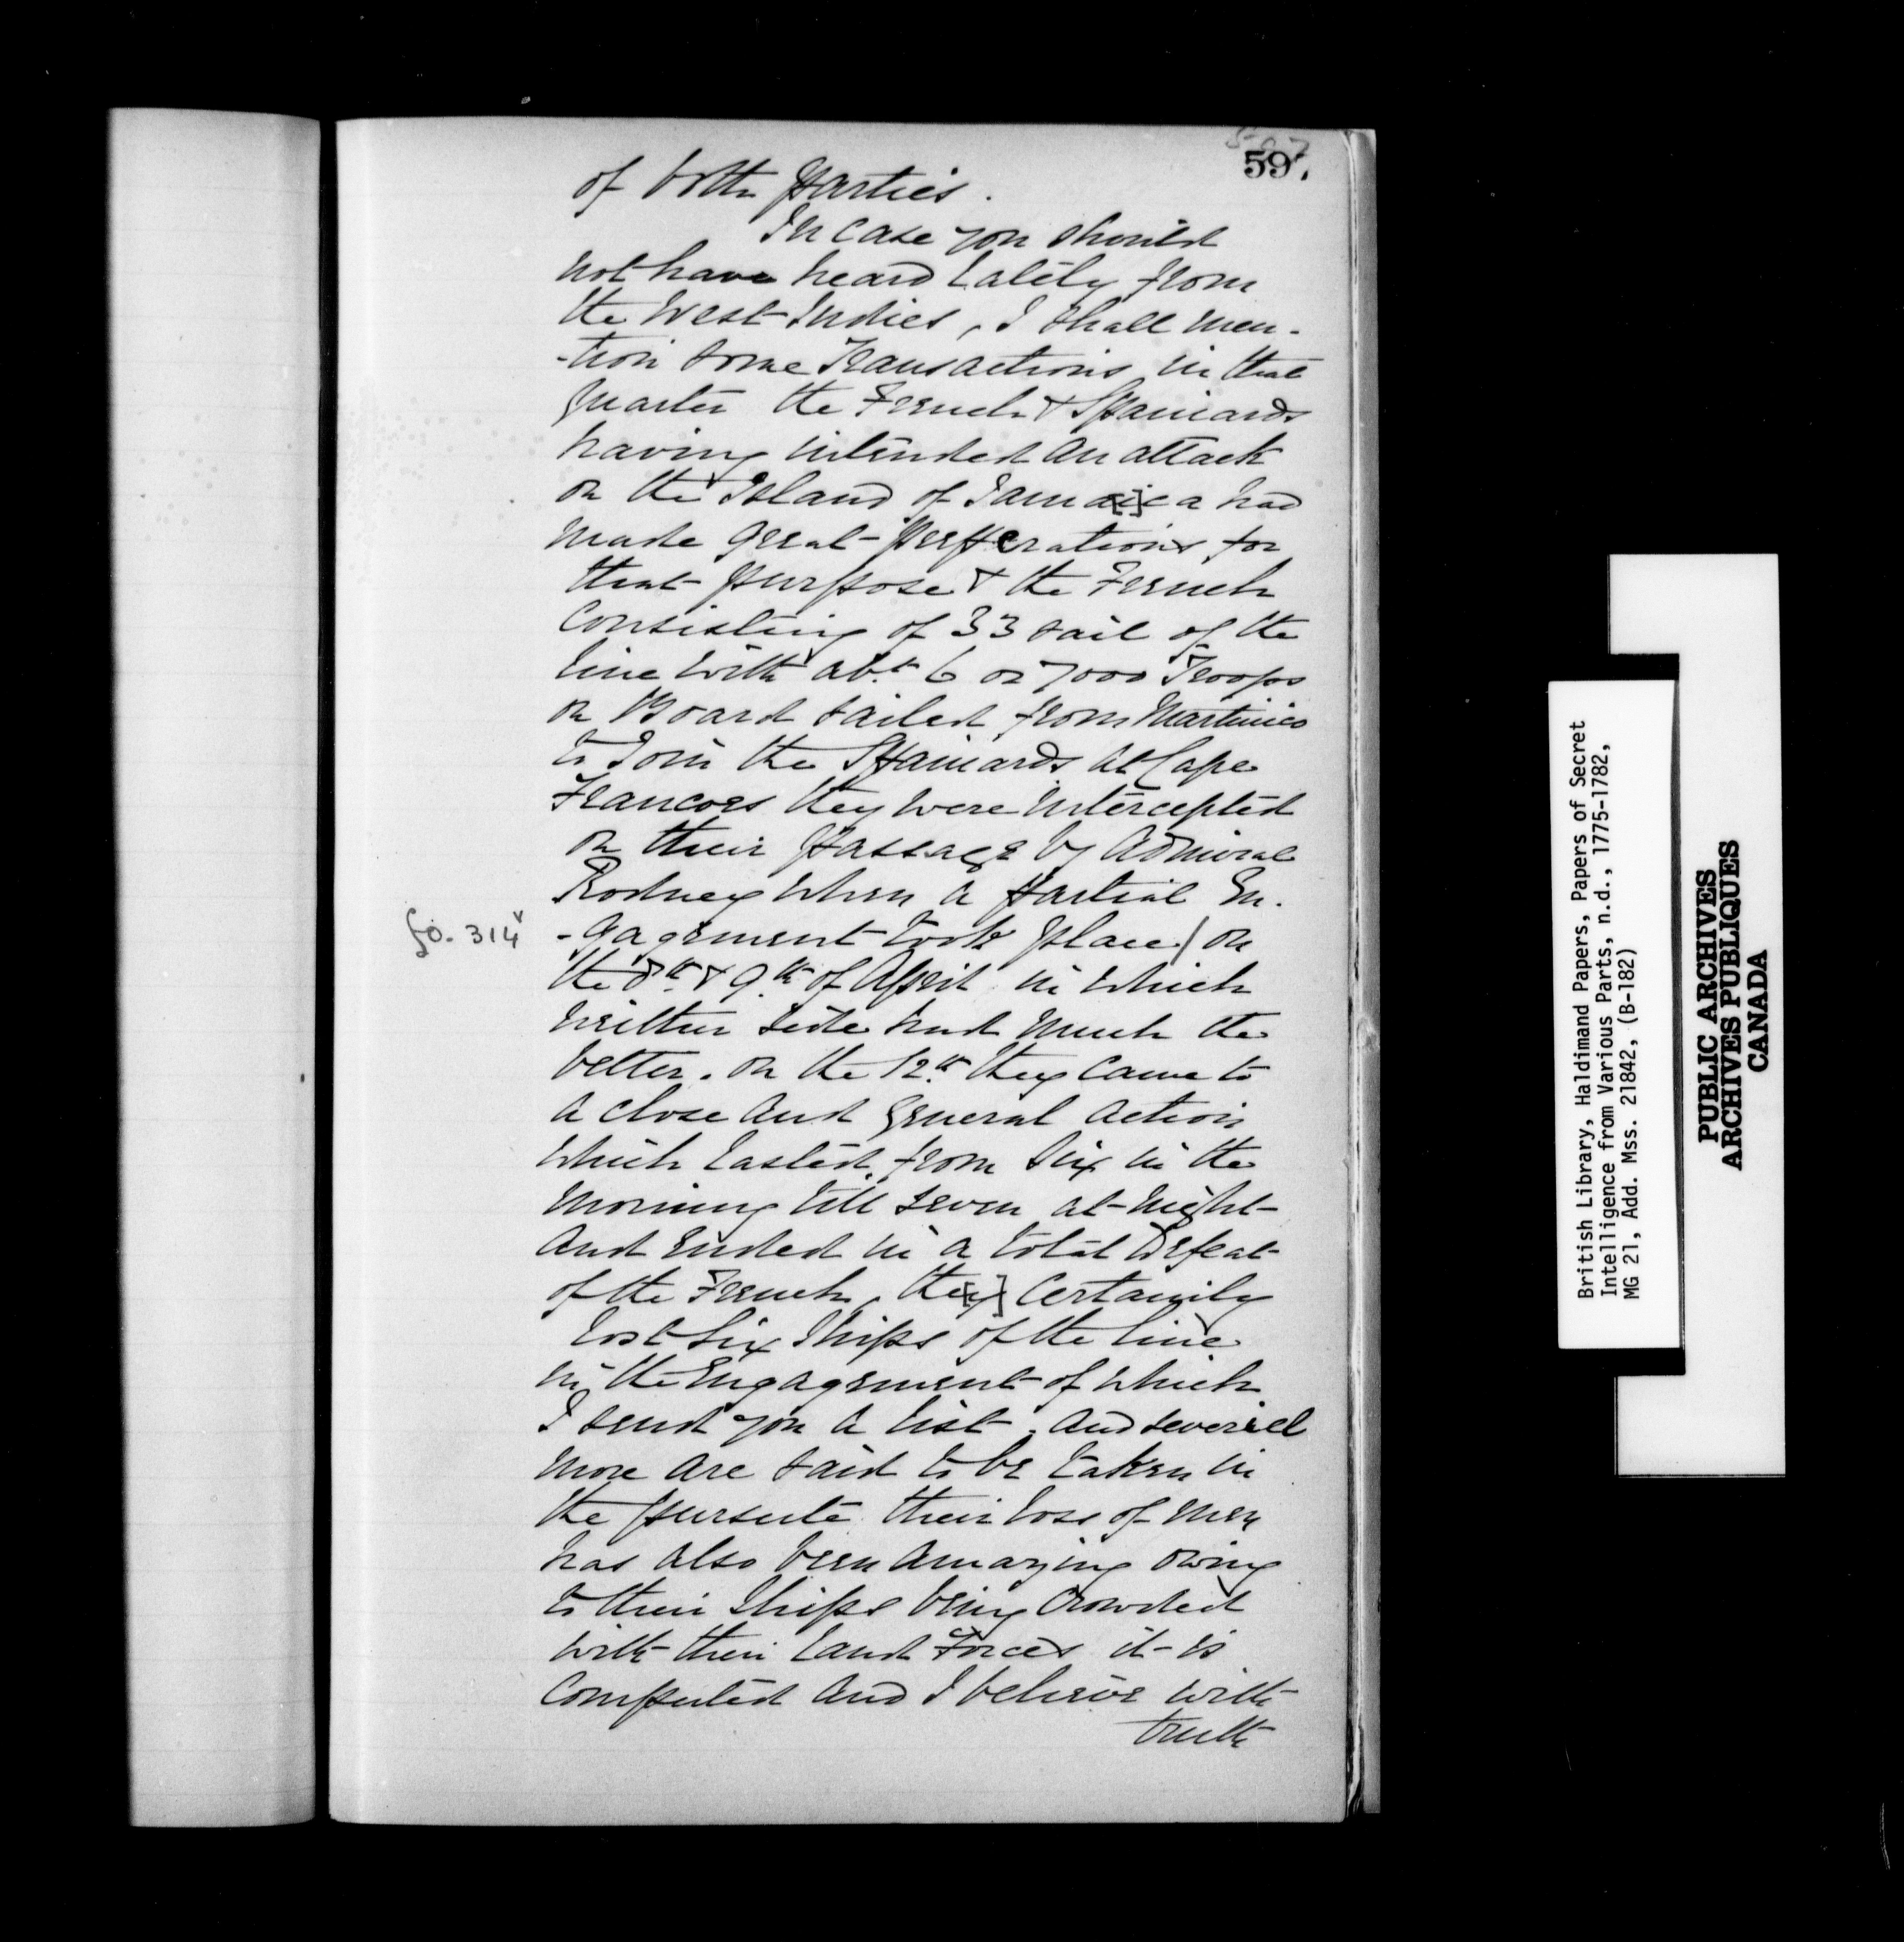 59.
of both parties.
In case you should
not have heard lately from
the West Indies, I shall men-
-tion some Transactions in that
quarter the French & Spaniards
having intended an attack
on the Island of Jama[i]ca had
made great preperations for
that purpose & the French
Consisting of 33 sail of the
line with abt. 6 or 7000 Troops
on Board sailed from Martinico
to Join the Spaniards at Cape
Francoes they were intercepted
on their passage by Admiral
Rodney when a partial En-
fo. 314v
-gagement took place / on
the 8th. & 9th. of April in which
neither side had much the
better. on the 12th. they came to
a close and general action
which lasted from Six in the
morning till seven at night
and ended in a total Defeat
of the French, the[y] Certainly
lost Six Ships of the line
in the Engagement of which
I send you a list. and several
more are said to be taken in
the pursute their loss of men
has also been amazing owing
to their Ships being Crowded
with their land Forces it is
Computed and I believe with
truth
British Library, Haldimand Papers, Papers of Secret
Intelligence from Various Parts, n.d., 1775-1782,
MG 21, Add. Mss. 21842, (B-182)
PUBLIC ARCHIVES
ARCHIVES PUBLIQUES
CANADA